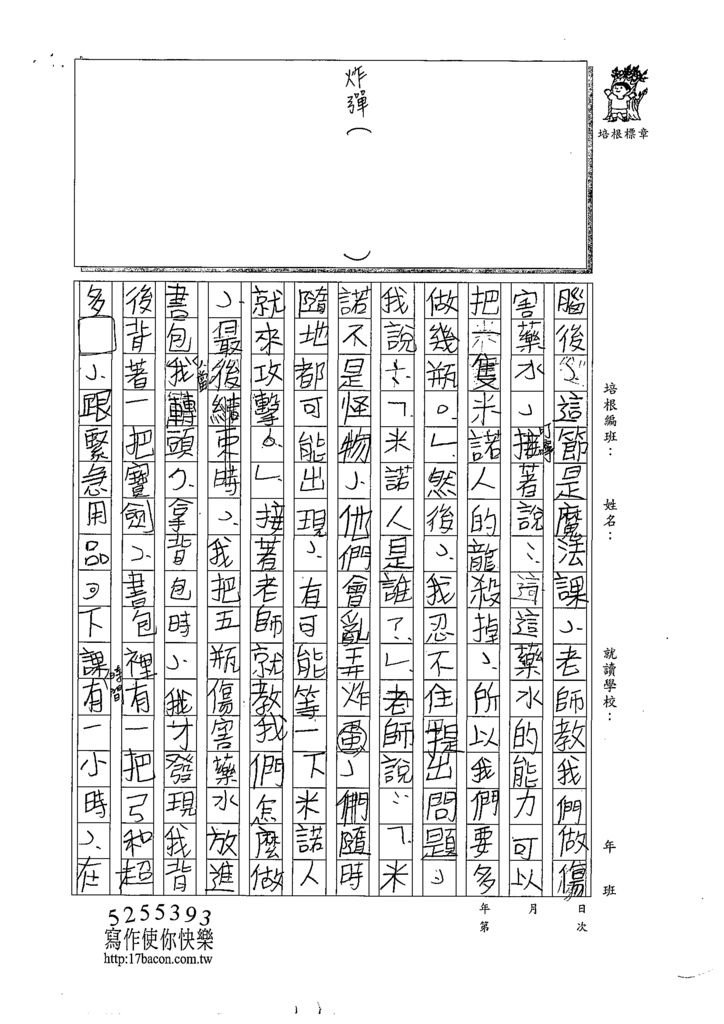 炸彈（　　　）
培根標章
培根編班：　姓名：　就讀學校：　年　班
腦後，這節是魔法課，老師教我們做傷
害藥水，接著說：這藥水的能力可以
叮嚀
把一隻米諾人的龍殺掉，所以我們要多
做幾瓶。」然後，我忍不住提出問題，
我說：「米諾人是誰？」老師說：「米
諾不是怪物，他們會亂弄炸蛋，們隨時
隨地都可能出現，有可能等一下米諾人
就來攻擊。」接著老師就教我們怎麼做
，最後結束時，我把五瓶傷害藥水放進
書包我轉頭，拿背包時，我才發現我背
當
後背著一把寶劍，書包裡有一把弓和超
多□，跟緊急用品。下課有一小時，在
時間
年　月　日
第　次
5255393
寫作使你快樂
http:17bacon.com.tw